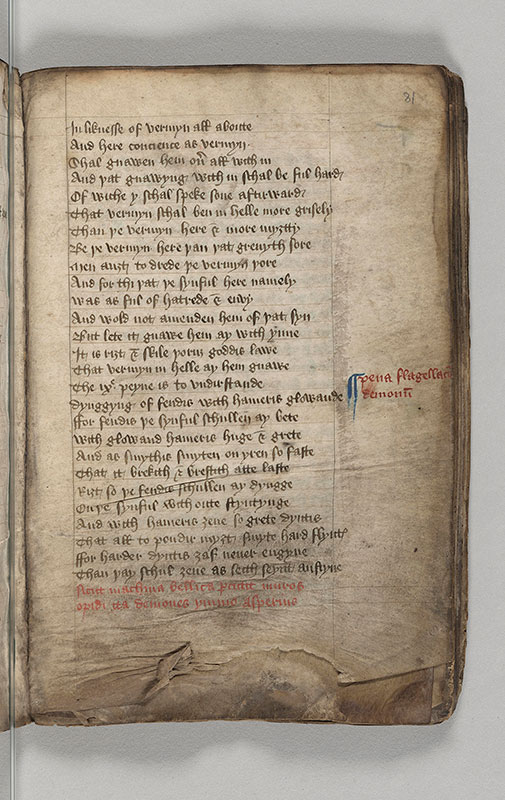 31
In liknesse of vermyn all aboute
And here concience as vermyn
Shal gnawen hem on all with in
And þat gnawyng with in schal be ful hard
Of wiche y schal speke sone aftirward
That vermyn schal ben in helle more grisely
Than þe vermyn here & more myȝtty
Be þe vermyn here þan þat greuyth sore
Men auȝt to drede þe vermyn þore
And for thi þat þe synful here namely
was as ful of hatrede & envy
And wold not amenden hem of þat syn
But lete it gnawe hem ay with ynne
It is riȝt & skile þorw goddis lawe
That vermyn in helle ay hem gnawe
The ixe peyne is to vndirstande
dynggyng of fendis with hameris glowande
pena flagellac
demonu
ffor fendis þe synful schullen ay bete
with glowand hameris huge & grete
And as smythis smyten on yren so faste
That it brekith & brestith atte laste
Riȝt so þe fendis schullen ay dyngge
On þe synful with oute styntynge
And with hameris ȝeue so grete dyntis
That all to poudir myȝt smyte hard flynt
ffor harder dyntis ȝaf neuer engyne
Than þay schul ȝeue as seith seynt austyne
Sicut machina bellica percutit muros
opidi ita demones asperius